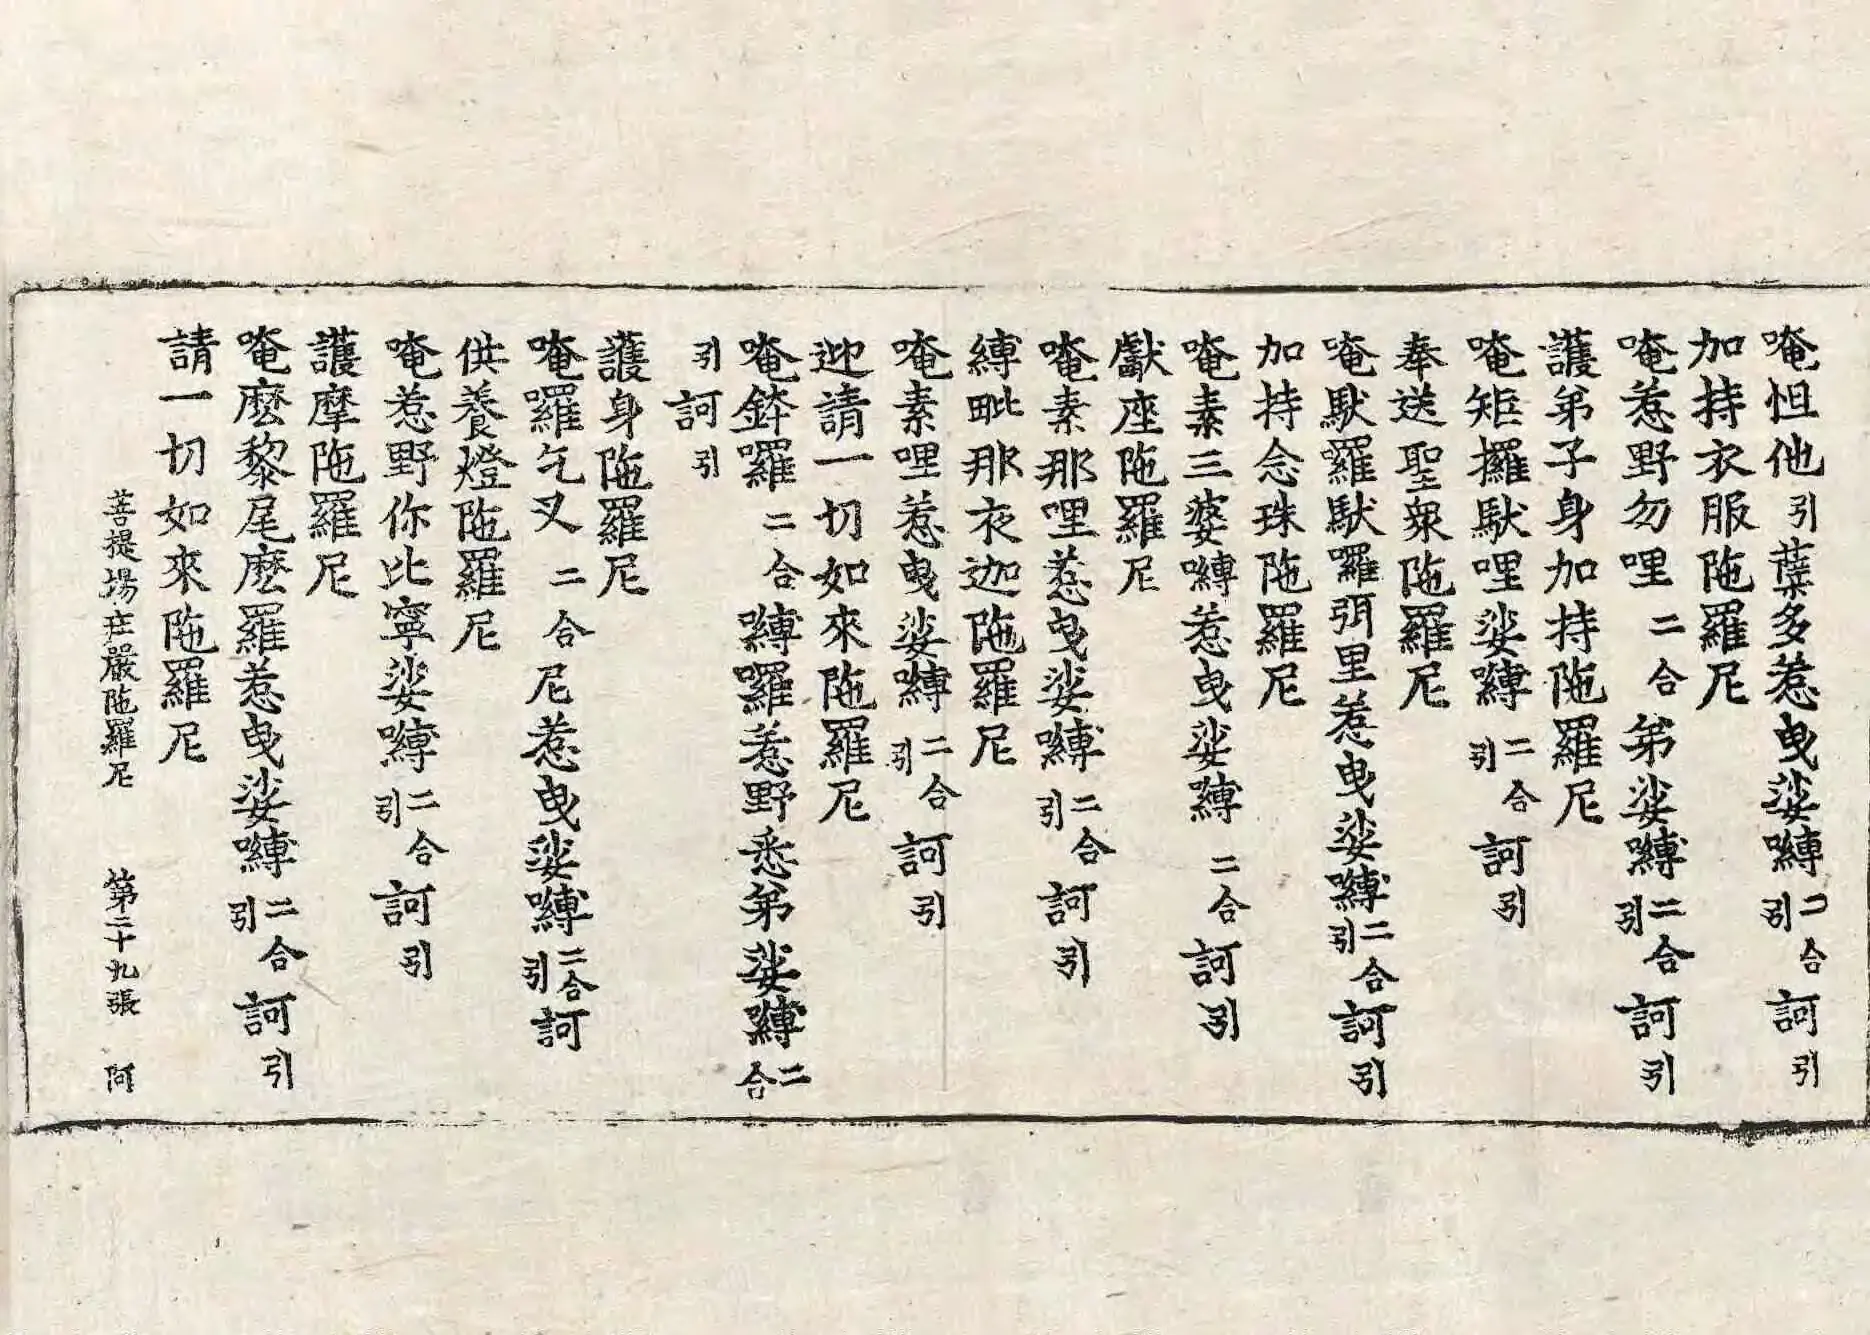 唵怛他引蘖多惹曳娑嚩二合引訶引
加持衣服陁羅尼
唵惹野勿哩二合弟娑嚩二合引訶引
護弟子身加持陁羅尼
唵矩攞馱哩娑嚩二合引訶引
奉送聖衆陁羅尼
唵馱羅馱囉弭里惹曳娑嚩二合引訶引
加持念珠陁羅尼
唵素三婆嚩惹曳娑嚩二合訶引
獻座陁羅尼
唵素那哩惹曳娑嚩二合引訶引
縛毗那夜迦陁羅尼
唵素哩惹曳娑嚩二合引訶引
迎請一切如來陁羅尼
唵鉢囉二合嚩囉惹野悉弟娑嚩二合
引訶引
護身陁羅尼
唵羅乞叉二合尼惹曳娑嚩二合引訶
供養燈陁羅尼
唵惹野你比寧娑嚩二合引訶引
護摩陁羅尼
唵麽黎尾麽羅惹曳娑嚩二合引訶引
請一切如來陁羅尼
菩提場庄嚴陁羅尼 第二十九張 阿